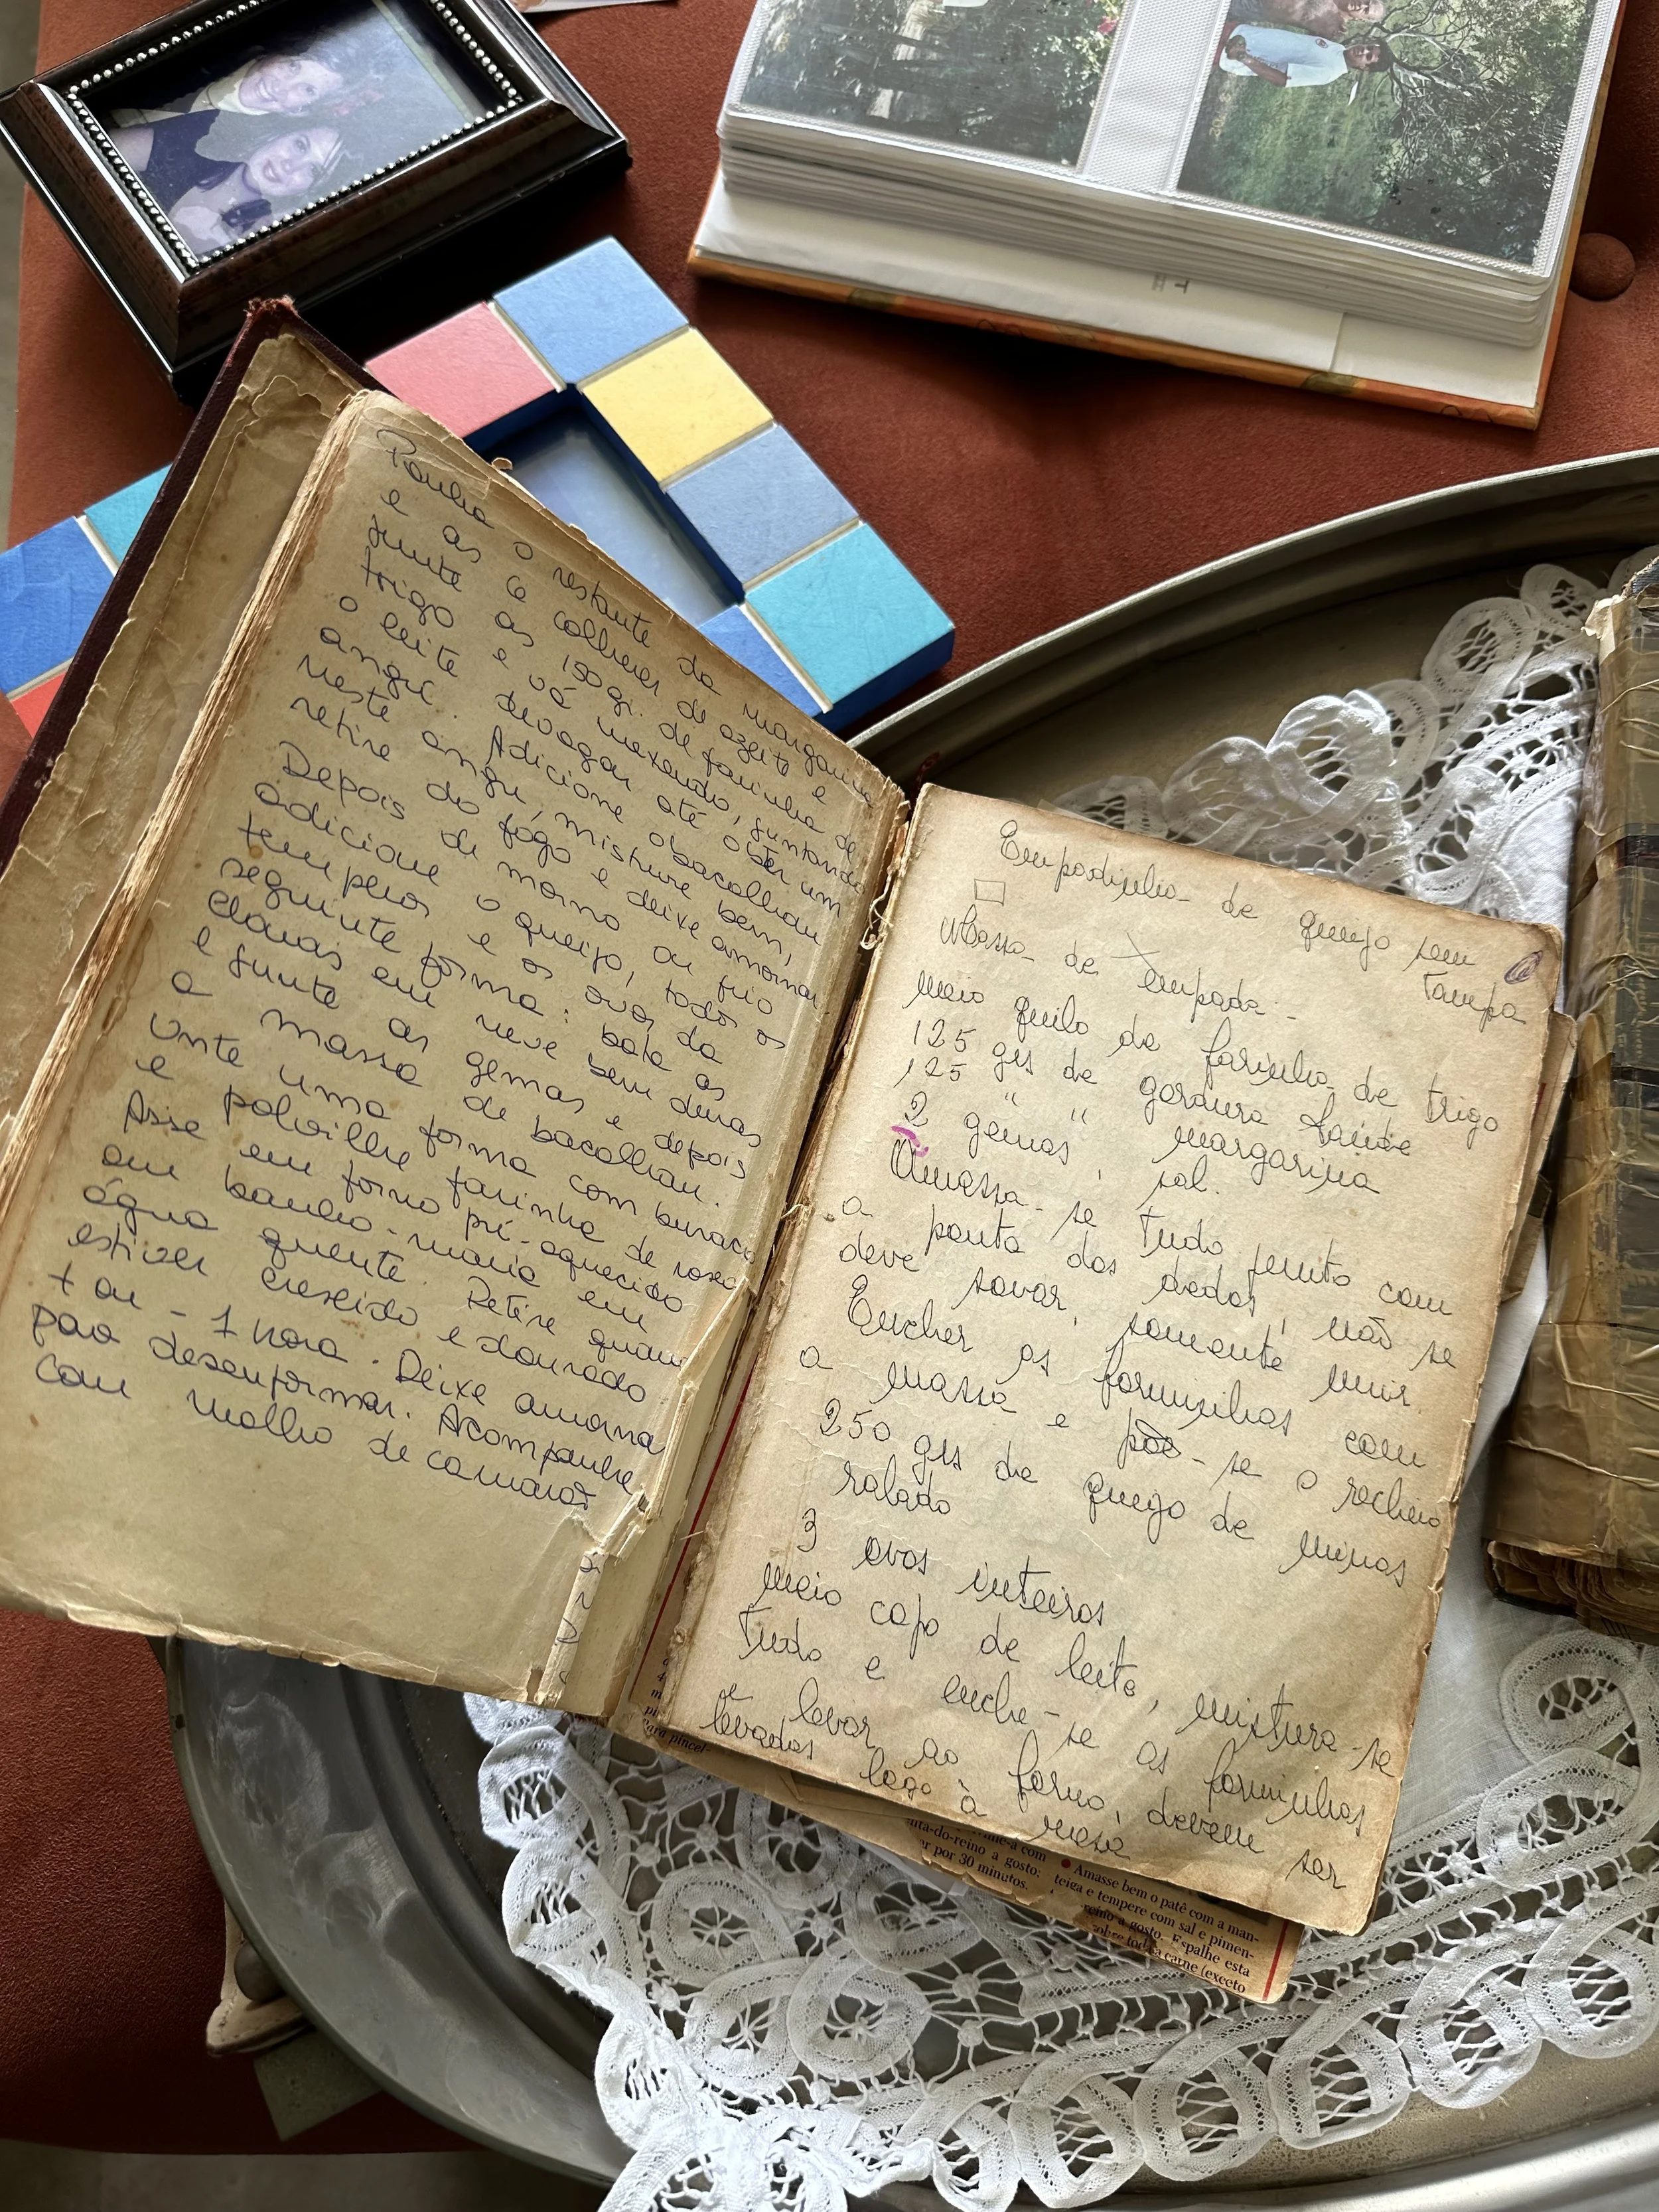 Ponha o restante da margarina
e as 6 colheres de azeite e
junte as 150 gr. de farinha de
trigo e vá mexendo, juntando
o leite devagar até obter um
angú. Adicione o bacalhau
neste angú, misture bem,
retire do fogo e deixe amornar
Depois de morno ou frio
adicione o queijo, todos os
temperos e os ovos da
seguinte forma: bata as
claras em neve bem duras
e junte as gemas e depois
a massa de bacalhau.
Unte uma forma com buraco
e polvilhe farinha de rosca
Asse em forno pré-aquecido
em banho-maria em
água quente. Retire quan
estiver crescido e dourado
+ ou - 1 hora. Deixe amorna
para desenformar. Acompanhe
com molho de camarão
Empadinha de queijo sem
tampa
Massa de empada -
meio quilo de farinha de trigo
125 grs de gordura saúde
125 " " margarina
2 gemas, sal.
Amassa-se tudo junto com
a ponta dos dedos, não se
deve sovar, somente unir.
Encher as forminhas com
a massa e põe-se o recheio
250 grs de queijo de minas
ralado
3 ovos inteiros
meio copo de leite, mistura-se
tudo e enche-se as forminhas
e levar ao forno, devem ser
levadas logo à mesa
Para pincel-
nta-do-reino a gosto.
er por 30 minutos.
• Amasse bem o patê com a man-
teiga e tempere com sal e pimen-
reino a gosto. Espalhe esta
sobre toda a carne (exceto